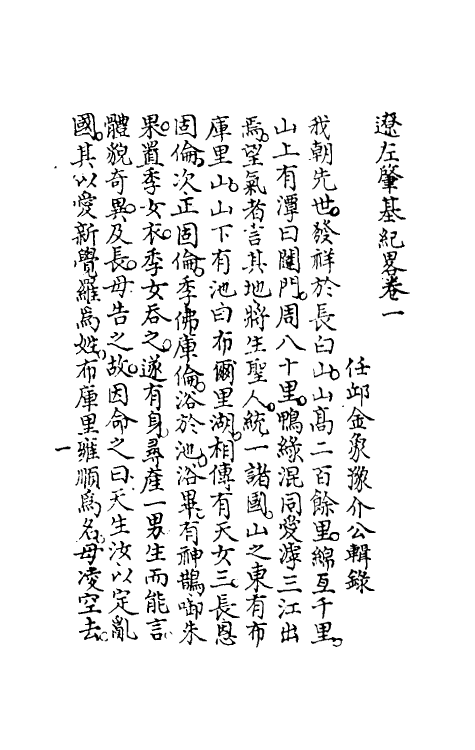 遼左肇基紀畧卷一
任邱金象豫介公輯錄
我朝先世。發祥於長白山。山高二百餘里。綿亙千里。
山上有潭曰闥門。周八十里。鴨綠混同愛滹三江出
焉。望氣者言其地將生聖人。統一諸國。山之東有布
庫里山。山下有池曰布爾里湖。相傳有天女三。長恩
固倫。次正固倫。季佛庫倫。浴於池。浴畢。有神鵲啣朱
果。置季女衣。季女吞之。遂有身。尋產一男。生而能言。
體貌奇異。及長。母告之故。因命之曰。天生汝以定亂
國。其以愛新覺羅爲姓。布庫里雍順爲名。母凌空去。
一